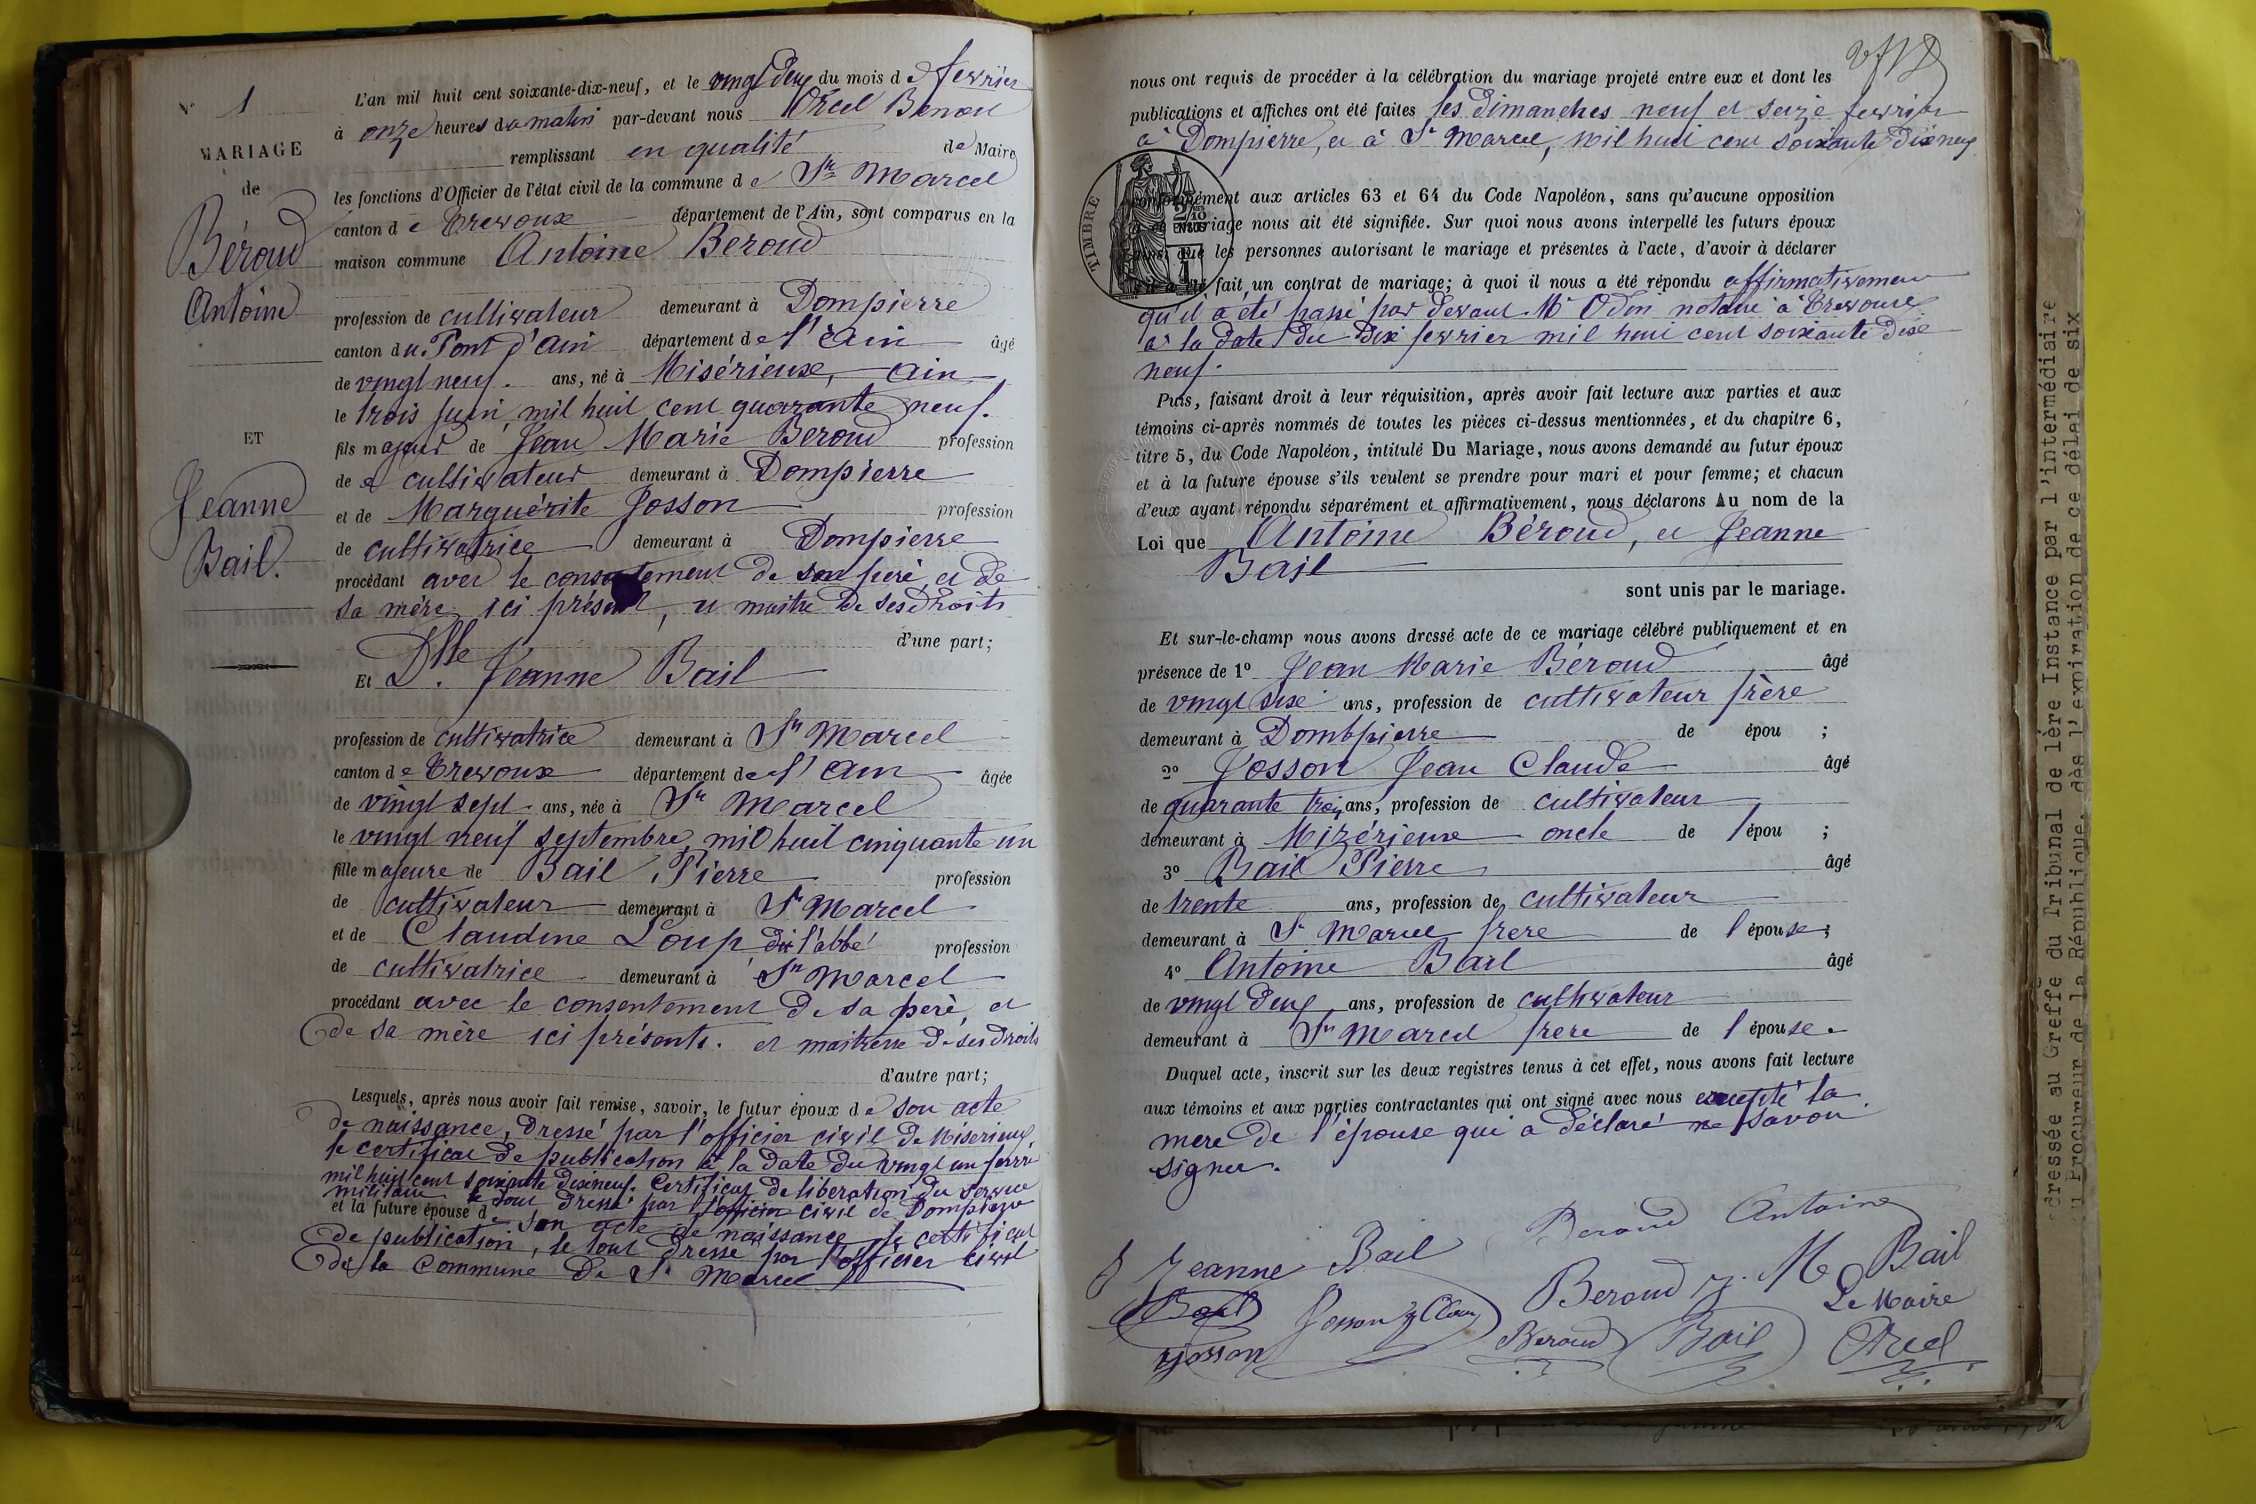 N° 1
MARIAGE
de
Béroud
Antoine
ET
Jeanne
Bail.
L'an mil huit cent soixante-dix-neuf, et le vingt deux du mois de fevrier
à onze heures du matin par-devant nous Orcel Benoit
remplissant en qualité de Maire
les fonctions d'Officier de l'état civil de la commune de St Marcel
canton de Trevoux département de l'Ain, sont comparus en la
maison commune Antoine Beroud
profession de cultivateur demeurant à Dompierre
canton du Pont d'Ain département de l'Ain âgé
de vingt neuf. ans, né à Misérieux, Ain
le trois juin, mil huit cent quarante neuf.
fils majeur de Jean Marie Beroud profession
de cultivateur demeurant à Dompierre
et de Marguérite Josson profession
de cultivatrice demeurant à Dompierre
procédant avec le consentement de son père et de
sa mère ici présent, et maitre de ses droits
d'une part;
Et Dlle. Jeanne Bail
profession de cultivatrice demeurant à St Marcel
canton de Trevoux département de l'Ain âgée
de vingt sept ans, née à St Marcel
le vingt neuf septembre, mil huit cinquante un
fille majeure de Bail Pierre profession
de cultivateur demeurant à St Marcel
et de Claudine Loup dit l'abbé profession
de cultivatrice demeurant à St Marcel
procédant avec le consentement de sa père, et
de sa mère ici présents. et maitresse de ses droits
d'autre part;
Lesquels, après nous avoir fait remise, savoir, le futur époux de son acte
de naissance, dressé par l'officier civil de Miserieux,
le certificat de publication à la date du vingt un fevrier
mil huit cent soixante dix neuf. Certificat de liberation du service
militaire le tout dressé par l'officier civil de Dompierre
et la future épouse de son acte de naissance le certificat
de publication, le tout dressé par l'officier civil
de la Commune de St Marcel
nous ont requis de procéder à la célébration du mariage projeté entre eux et dont les
publications et affiches ont été faites les dimanches neuf et seize fevrier
à Dompierre, et à St Marcel, mil huit cent soixante dix neuf
TIMBRE
conformément aux articles 63 et 64 du Code Napoléon, sans qu'aucune opposition
à ce mariage nous ait été signifiée. Sur quoi nous avons interpellé les futurs époux
ainsi que les personnes autorisant le mariage et présentes à l'acte, d'avoir à déclarer
s'il a été fait un contrat de mariage; à quoi il nous a été répondu affirmativement
qu'il a été passé par devant Me Odin notaire à Trevoux
à la date du dix fevrier mil huit cent soixante dix
neuf.
Puis, faisant droit à leur réquisition, après avoir fait lecture aux parties et aux
témoins ci-après nommés de toutes les pièces ci-dessus mentionnées, et du chapitre 6,
titre 5, du Code Napoléon, intitulé Du Mariage, nous avons demandé au futur époux
et à la future épouse s'ils veulent se prendre pour mari et pour femme; et chacun
d'eux ayant répondu séparément et affirmativement, nous déclarons Au nom de la
Loi que Antoine Béroud, et Jeanne
Bail
sont unis par le mariage.
Et sur-le-champ nous avons dressé acte de ce mariage célébré publiquement et en
présence de 1° Jean Marie Béroud âgé
de vingt six ans, profession de cultivateur frère
demeurant à Dombpierre de épou ;
2° Josson Jean Claude âgé
de quarante trois ans, profession de cultivateur
demeurant à Mizérieux oncle de l'épou ;
3° Bail Pierre âgé
de trente ans, profession de cultivateur
demeurant à St Marcel frere de l'épouse;
4° Antoine Bail âgé
de vingt deux ans, profession de cultivateur
demeurant à St Marcel frere de l'épouse.
Duquel acte, inscrit sur les deux registres tenus à cet effet, nous avons fait lecture
aux témoins et aux parties contractantes qui ont signé avec nous excepté la
mere de l'épouse qui a déclaré ne savoir
signer.
Beroud Antoine
Jeanne Bail
Beroud J. M Bail
Bail Josson J Clau
Le Maire
Josson Beroud Bail Orcel
dressée au Greffe du Tribunal de 1ère Instance par l'intermédiaire
u Procureur de la République, dès l'expiration de ce délai de six